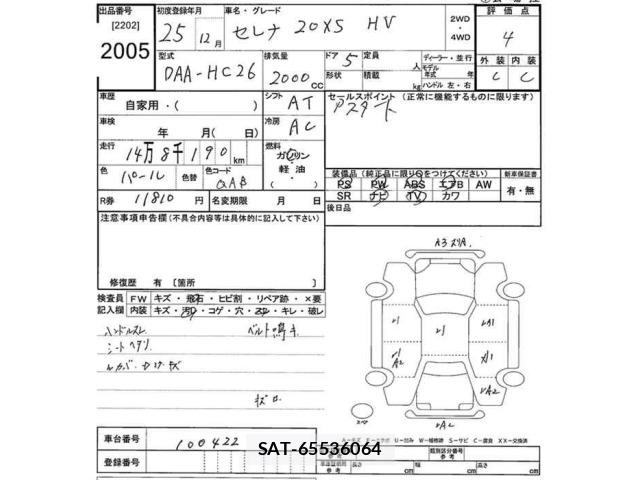 出品番号 初度登録年月 車名・グレード 2WD ・ 4WD 評価点
[2202]
2005 25年 12月 セレナ 20XS HV 4
型式 排気量 ドア 5 定員 人 ディーラー・並行 外装 内装
モデル年式 年
DAA-HC26 2000cc 形状 積載 kg ハンドル 左・右 C C
車歴 自家用・( ) シフト AT セールスポイント (正常に機能するものに限ります)
アスタート
車検 年 月( 日) 冷房 AC
走行 14万8千190km 燃料 ガソリン・軽油・( )
装備品 (純正品に限り○をつけてください) 新車保証書
色 パール 色替 色コード QAB
PS PW ABS エアB AW 有・無
SR ナビ TV カワ
R券 11810円 名変期限 月 日 後日品
注意事項申告欄(不具合内容等は具体的に記入して下さい)
修復歴 有 [箇所 ]
検査員記入欄 FW キズ・飛石・ヒビ割・リペア跡・×要
内装 キズ・汚れ・コゲ・穴・スレ・キレ・破レ
ハンドルスレ ベルト鳴キ
シートヘタリ
A2
A2
車台番号 100422
登録番号
SAT-65536064
U-凹み W-補修跡 S-サビ C-腐食 XX-交換済
類別区分番号
参考
長さ cm 幅 cm 高さ cm